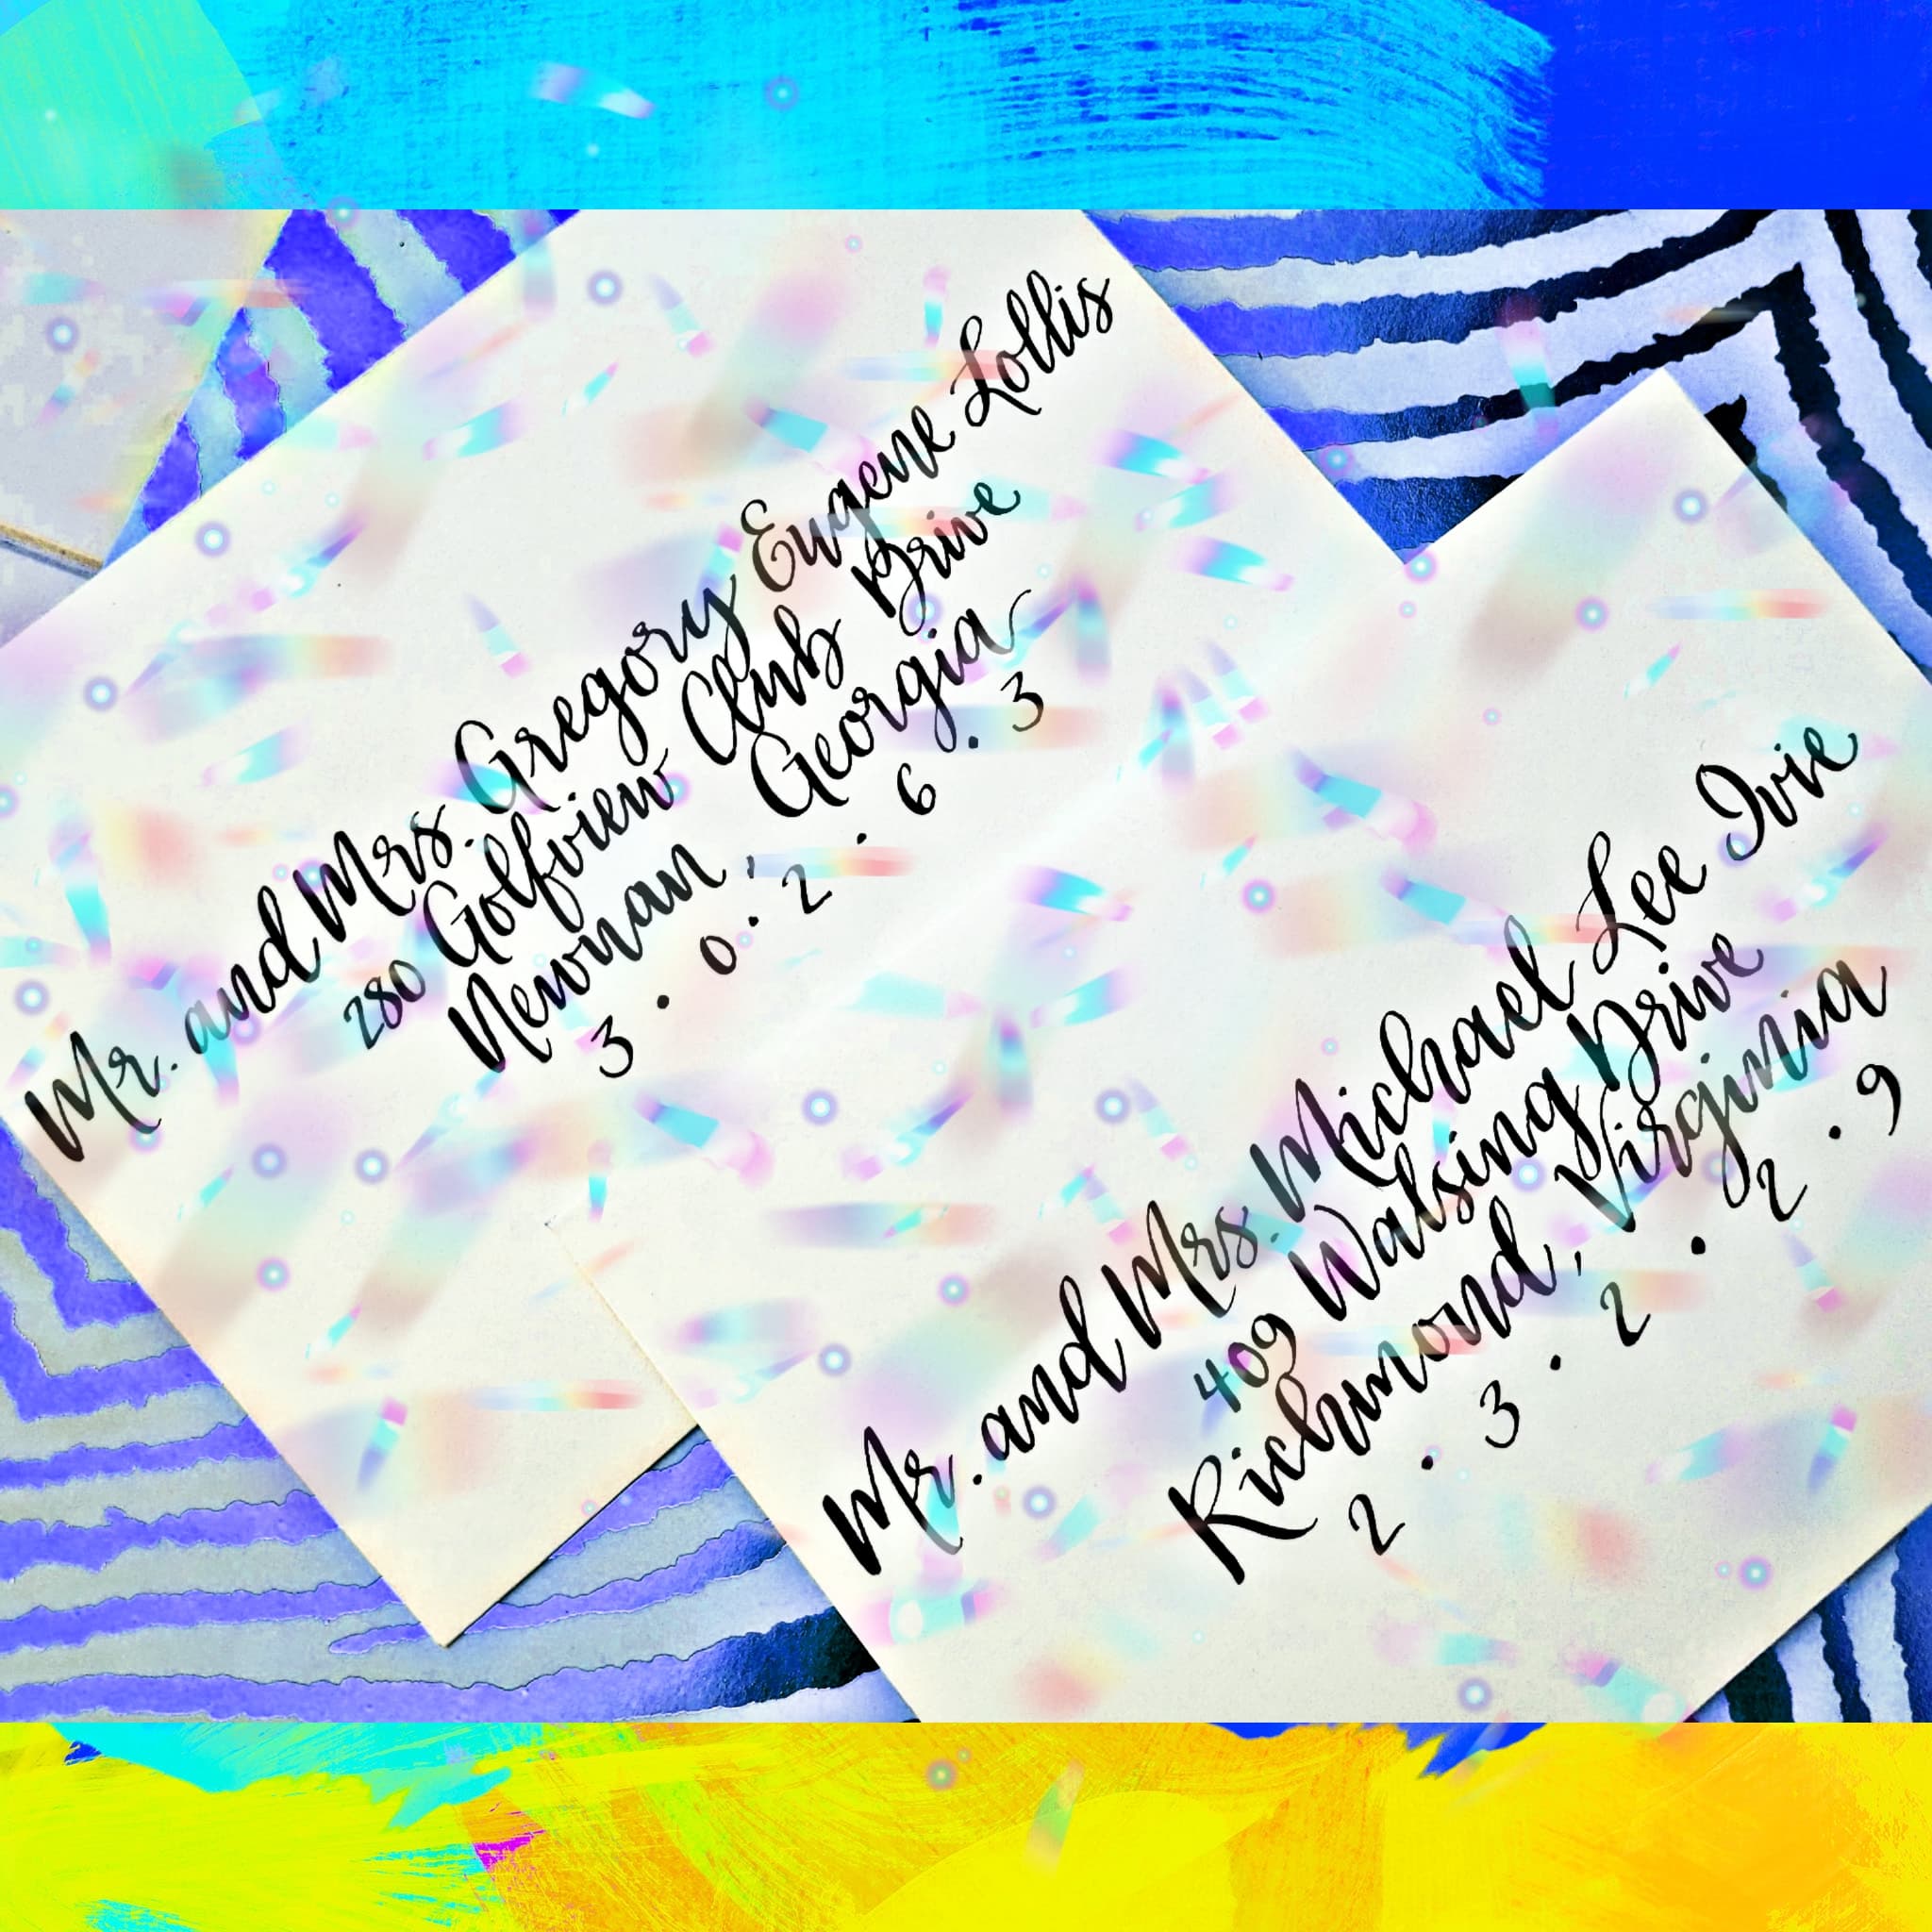 Mr. and Mrs. Gregory Eugene Lollis
280 Golfview Club Drive
Newnan, Georgia
3 . 0 . 2 . 6 . 3
Mr. and Mrs. Michael Lee Ivie
409 Walsing Drive
Richmond, Virginia
2 . 3 . 2 . 2 . 9